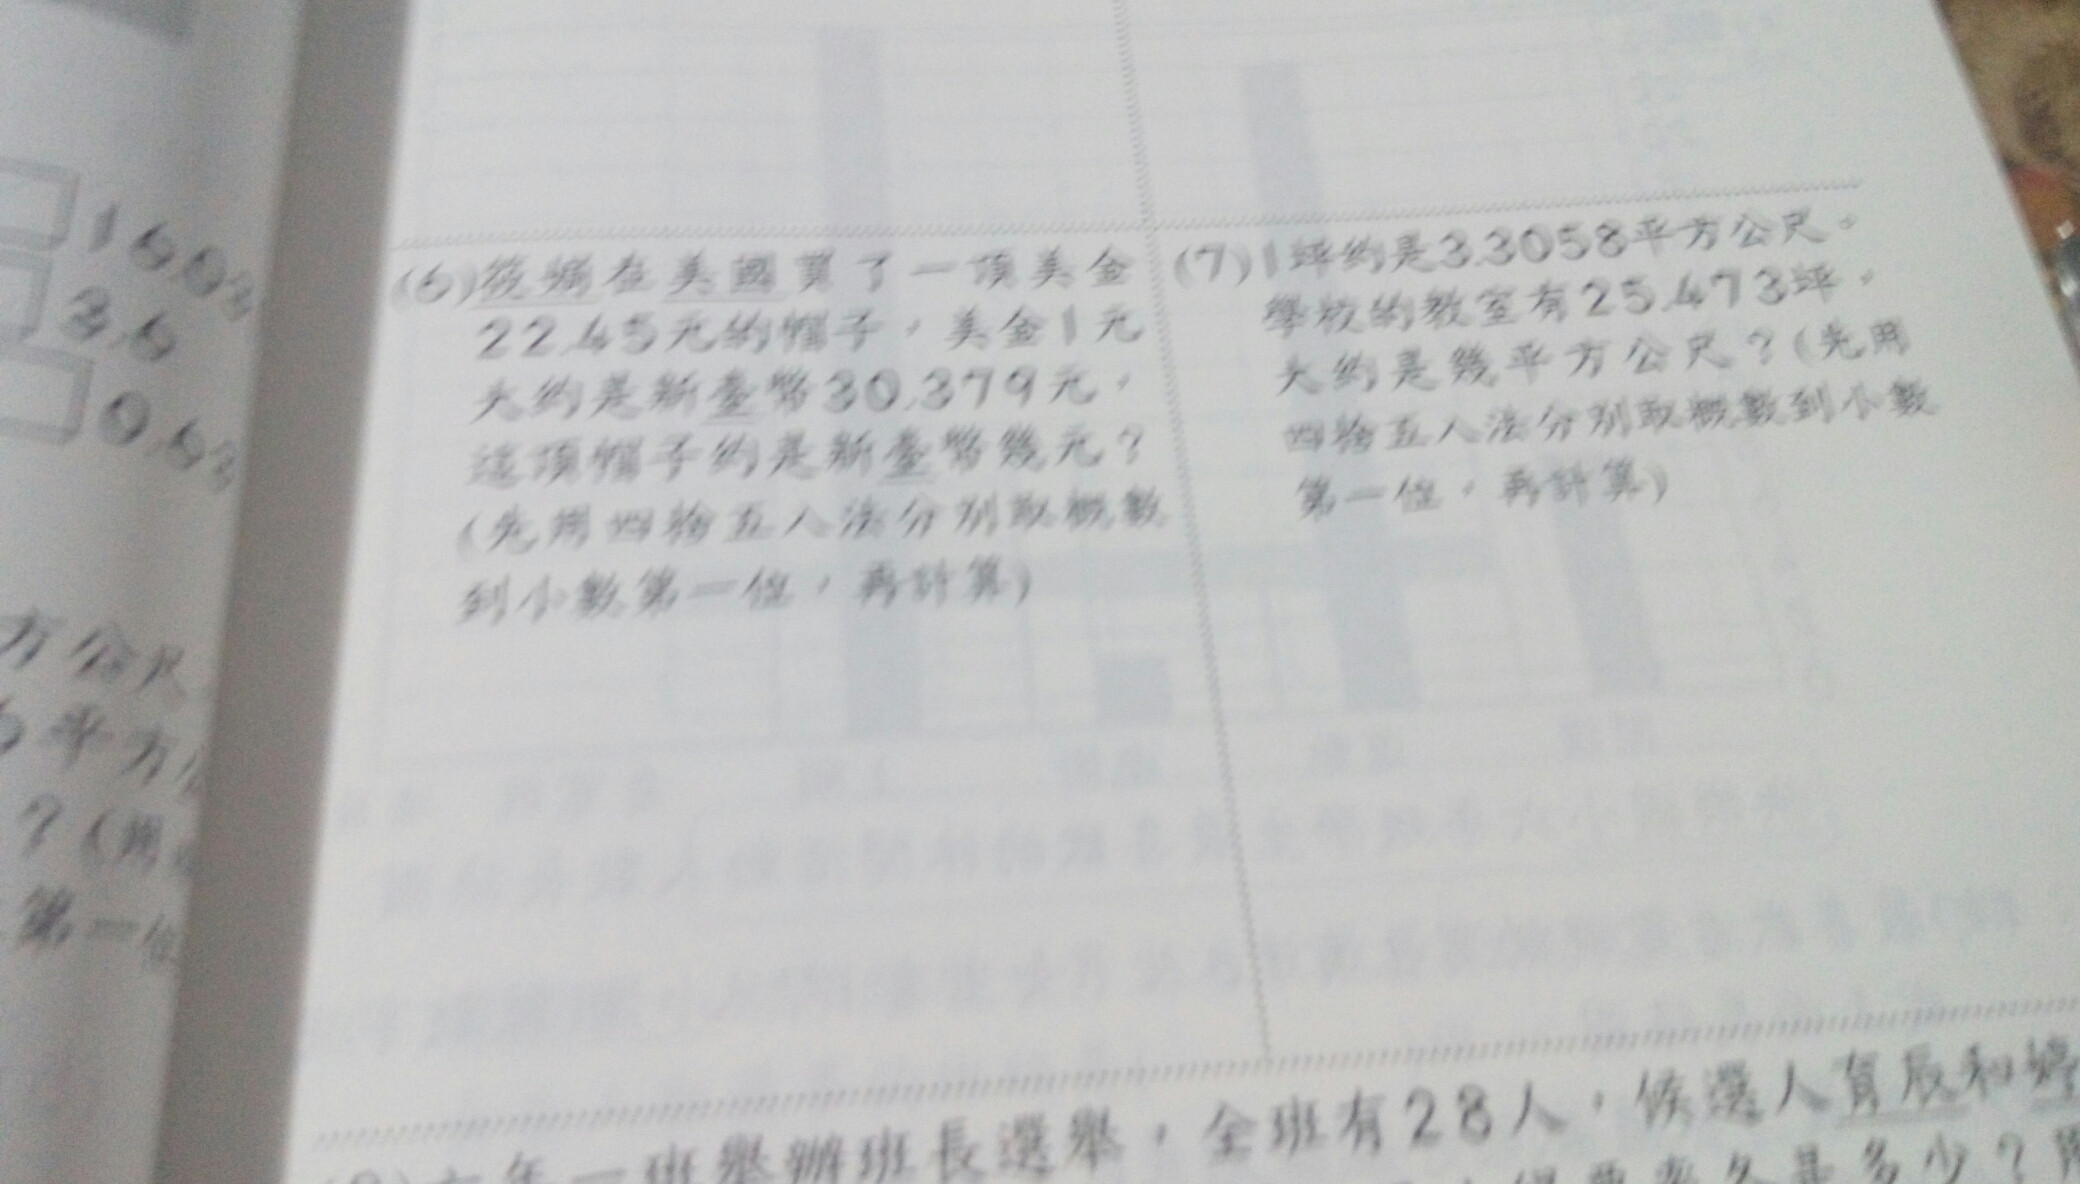 1608
3.6
0.63
方公尺
6平方
？(用
第一位
(6)筱嫻在美國買了一頂美金
22.45元的帽子，美金1元
大約是新臺幣30.379元，
這頂帽子約是新臺幣幾元？
(先用四捨五入法分別取概數
到小數第一位，再計算)
(7)1坪約是3.3058平方公尺。
學校的教室有25.473坪，
大約是幾平方公尺？(先用
四捨五入法分別取概數到小數
第一位，再計算)
六年一班舉辦班長選舉，全班有28人，候選人育辰和
多少？